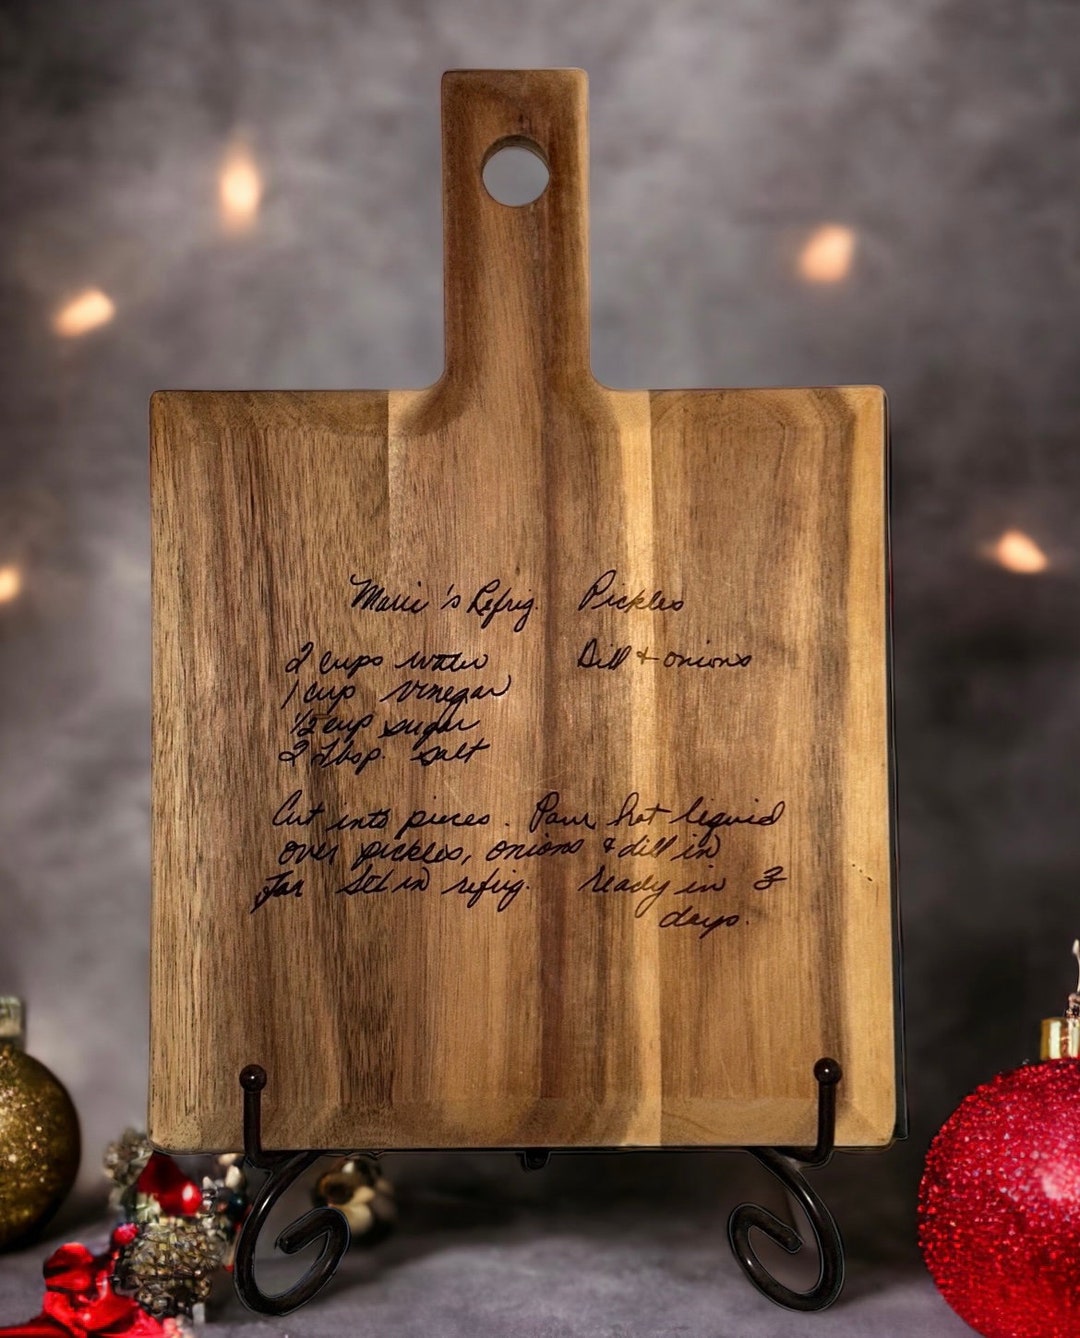 Marie's Refrig. Pickles
2 cups water Dill & onions
1 cup vinegar
1/2 cup sugar
2 Tbsp. salt
Cut into pieces. Pour hot liquid
over pickles, onions & dill in
Jar Set in refrig. Ready in 3
days.